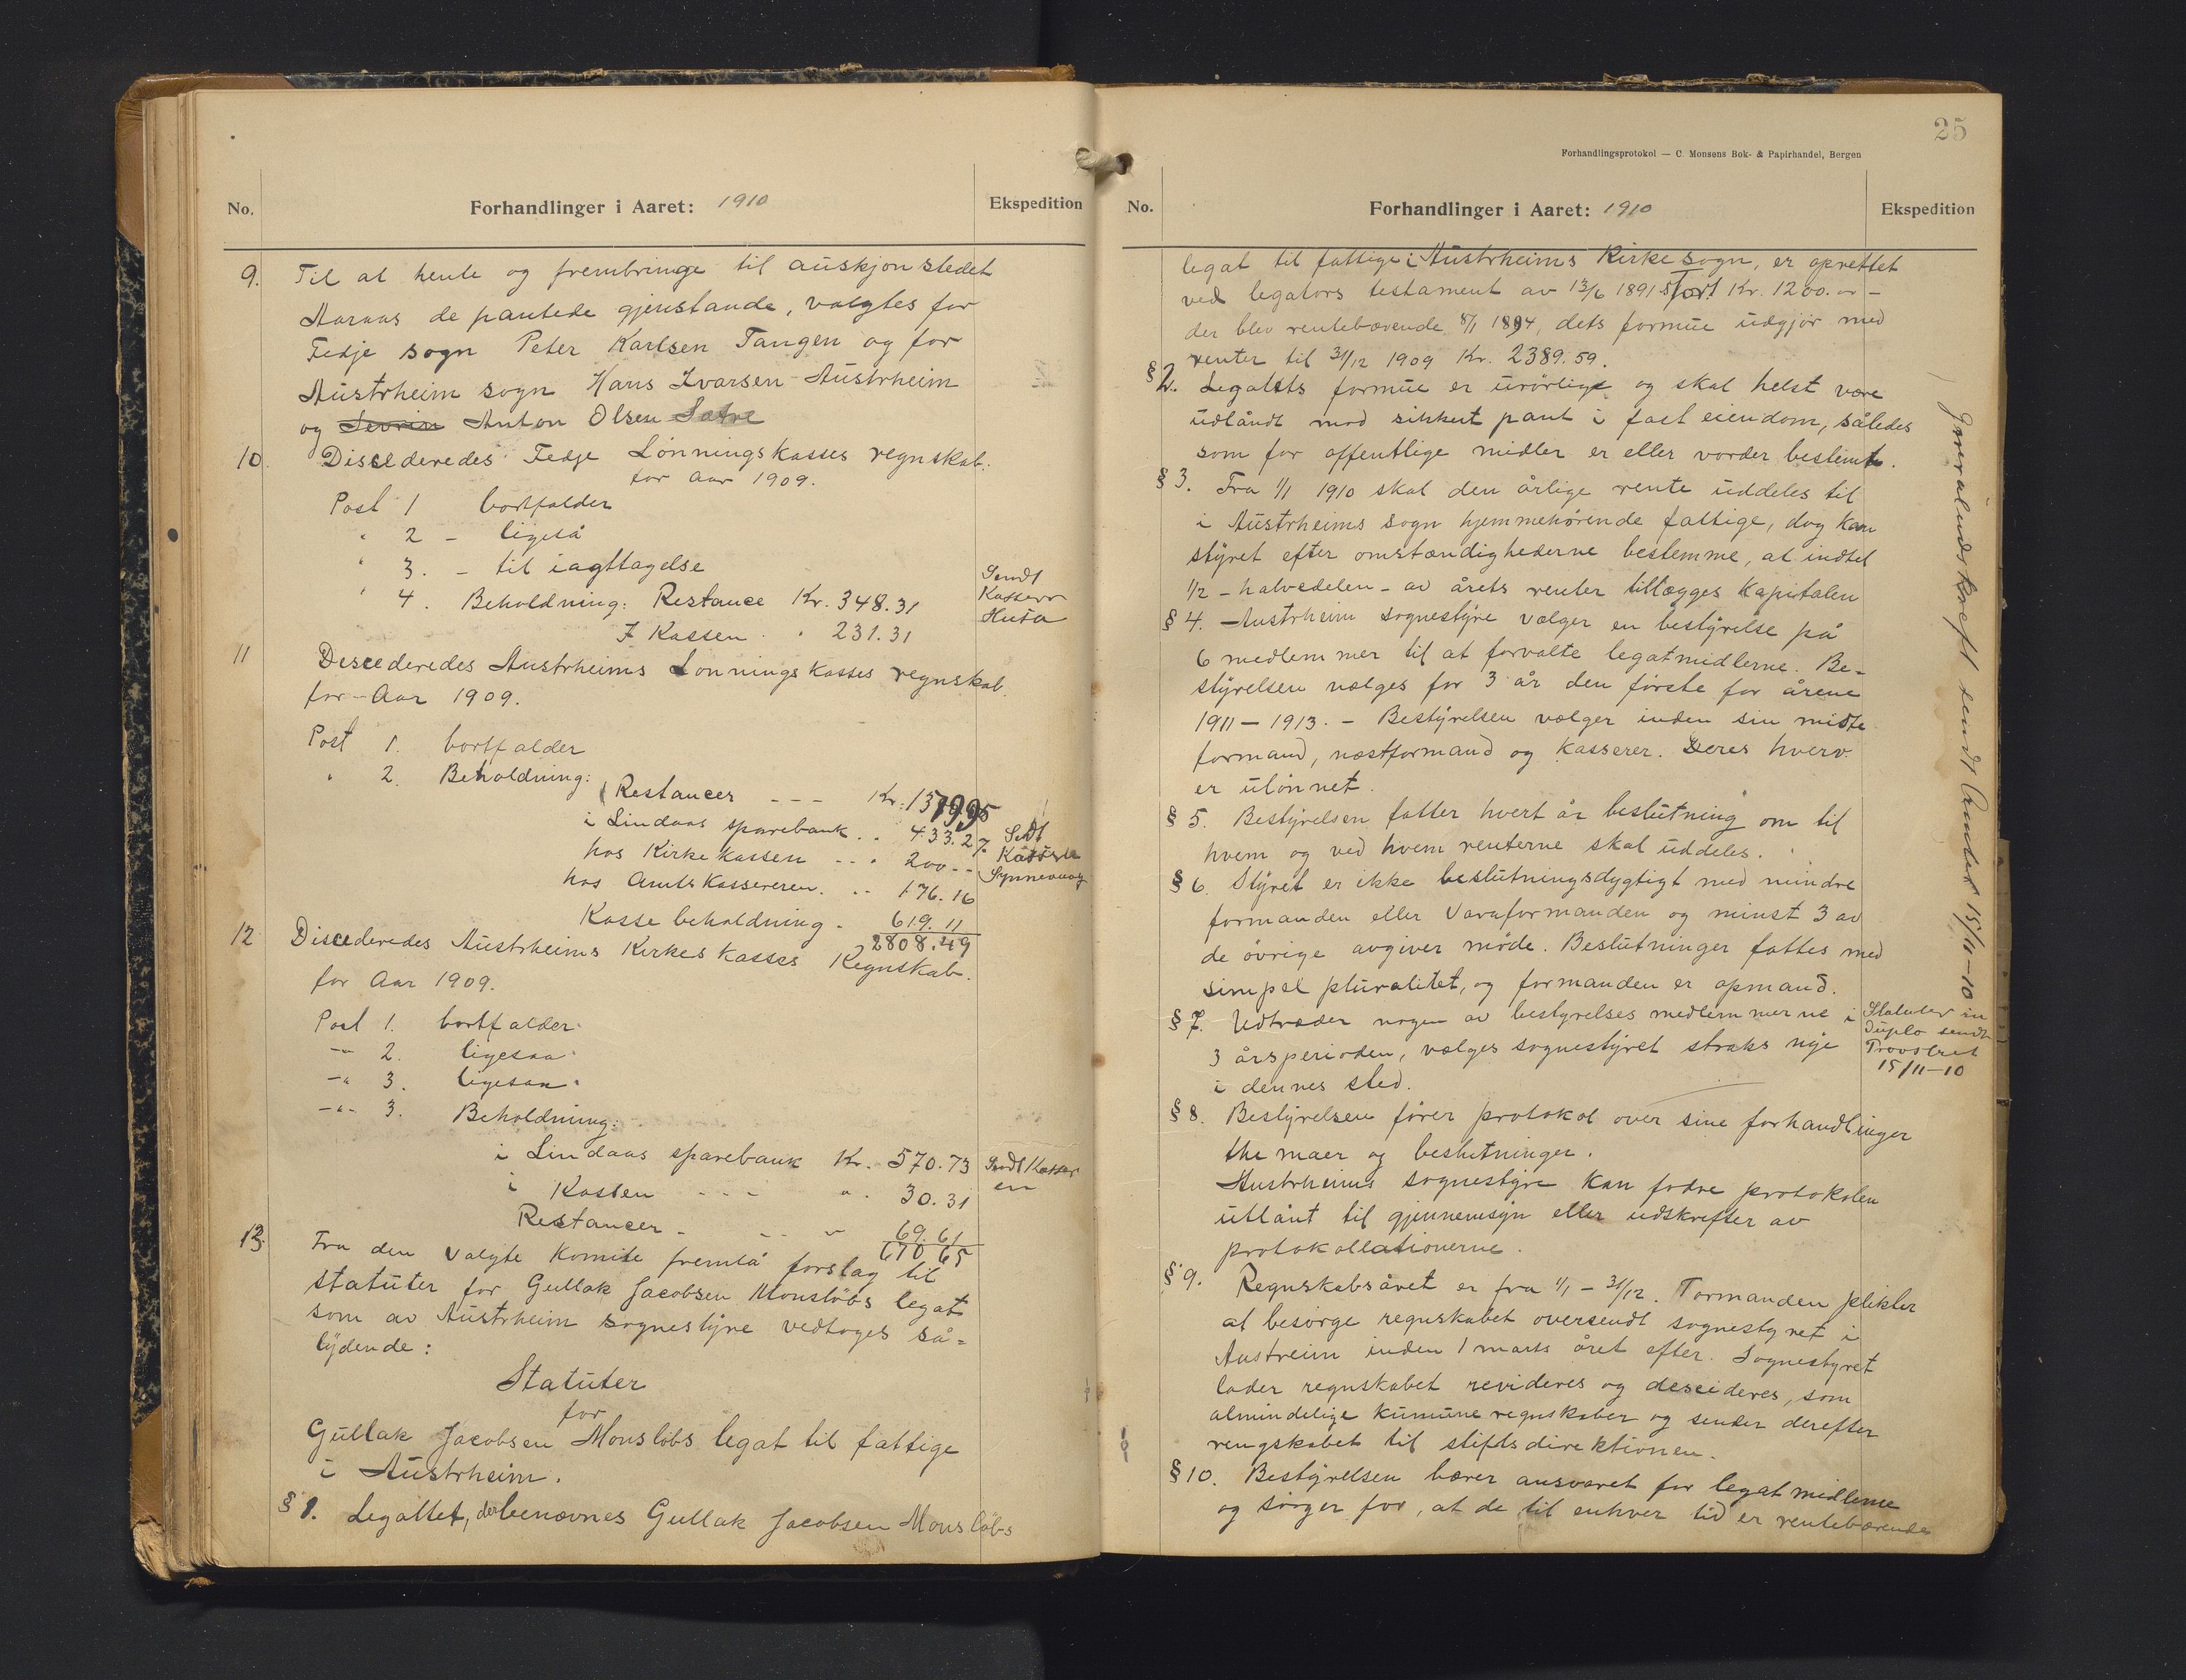 No.
Forhandlinger i Aaret: 1910
Ekspedition
9. Til at hente og frembringe til auskjonstedet
Aaraas de pantede gjenstande, valgtes for
Fedje sogn Peter Karlsen Tangen og for
Austrheim sogn Hans Ivarsen Austrheim
og Sevrin Anton Olsen Sætre
10. Discideredes Fedje Lönningskasses regnskab.
for Aar 1909.
Post 1 bortfalder
" 2 - ligeså
" 3. - til iagttagelse
" 4. Beholdning: Restance Kr. 348.31
I Kassen . " 231.31
Sendt
Kasserer
Husa
11 Descederedes Austrheims Lönningskasses regnskab.
for Aar 1909.
Post 1. bortfalder
" 2. Beholdning:
Restancer - - - Kr. 1379.95
i Lindaas sparebank . . 433.27.
hos Kirkekassen - - " 200 - -
hos Amtskassereren. . - 176.16
Kasse beholdning - 619.11
2808.49
Sendt
Kasserer
Synnevaag
12 Discederedes Austrheims Kirkes kasses Regnskab.
for Aar 1909.
Post 1. bortfalder.
-"- 2. ligesaa.
-"- 3. ligesaa.
-"- 3. Beholdning:
i Lindaas sparebank Kr. 570.73
i Kassen - - - " . 30.31
Restancer - - - " 69.61
670 65
Sendt Kasser
en
13. Fra den valgte Komite fremlå forslag til
statuter for Gullak Jacobsen Monslöbs legat
som av Austrheim sognestyre vedtoges så=
lydende:
Statuter
for
Gullak Jacobsen Monslöbs legat til fattige
i Austrheim.
§ 1. Legattet, der benævnes Gullak Jacobsen Monslöbs
25
Forhandlingsprotokol — C. Monsens Bok- & Papirhandel, Bergen
No.
Forhandlinger i Aaret: 1910
Ekspedition
legat til fattige i Austrheims Kirkesogn, er oprettet
ved legators testament av 13/6 1891 stort Kr. 1200.00 -
der blev rentebærende 8/1 1894, dets formue udgjør med
renter til 31/12 1909 Kr. 2389.59.
§ 2. Legatets formue er urørlige og skal helst være
udlåndt mod sikkert pant i fast eiendom, således
som for offentlige midler er eller vorder bestemt.
§ 3. Fra 1/1 1910 skal den årlige rente uddeles til
i Austrheims sogn hjemmehørende fattige, dog kan
styret efter omstændighederne bestemme, at indtil
1/2 - halvedelen - av årets renter tillægges kapitalen
§ 4. Austrheim sognestyre vælger en bestyrelse på
6 medlemmer til at forvalte legatmidlerne. Be-
styrelsen vælges for 3 år den første for årene
1911 - 1913. - Bestyrelsen vælger inden sin midte
formand, næstformand og kasserer. Deres hverv
er ulönnet.
§ 5. Bestyrelsen fatter hvert år beslutning om til
hvem og ved hvem renterne skal uddeles.
§ 6. Styret er ikke beslutningsdygtigt med mindre
formanden eller Varaformanden og minst 3 av
de øvrige avgiver møde. Beslutninger fattes med
simpel pluralitet, og formanden er opmand.
§ 7. Udtræder nogen av bestyrelses medlemmerne i
3 årsperioden, vælges sognestyret straks nye
i dennes sted.
Statuter in
duplo sendt
Provstiet
15/11-10
§ 8. Bestyrelsen fører protokol over sine forhandlinger
themaer og beslutninger.
Austrheims sognestyre kan fodre protokolen
utlånt til gjennemsyn eller udskrefter av
protokollationerne.
§ 9. Regnskabsåret er fra 1/1 - 31/12. Formanden plikter
at besørge regnskabet oversendt sognestyret i
Austreim inden 1 marts året efter. Sognestyret
lader regnskabet revideres og descideres, som
almindelige kumune regnskaber og sender derefter
rengskabet til stiftsdirektionen.
§ 10. Bestyrelsen bærer ansvaret for legatmidlerne
og sörger for, at de til enhver tid er rentebærende
Generaludskreft sendt Amtet 15/11-10